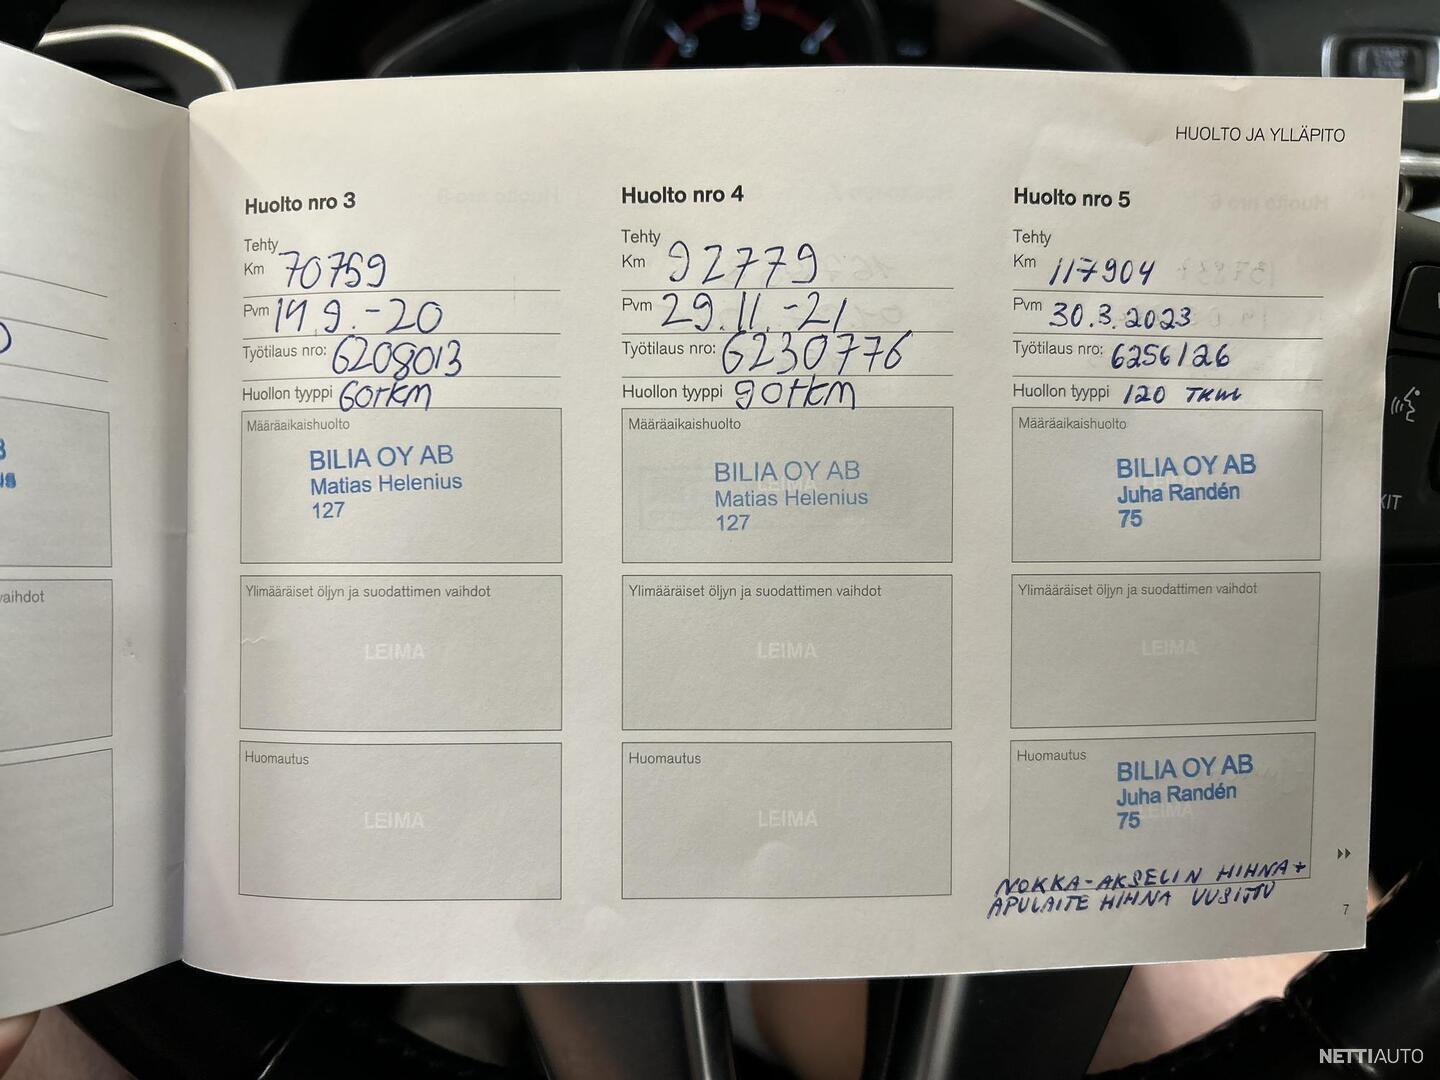 HUOLTO JA YLLÄPITO
Huolto nro 3
Tehty
Km 70759
Pvm 14.9.-20
Työtilaus nro: 6208013
Huollon tyyppi 60tkm
Määräaikaishuolto
BILIA OY AB
Matias Helenius
127
Ylimääräiset öljyn ja suodattimen vaihdot
LEIMA
Huomautus
LEIMA
Huolto nro 4
Tehty
Km 92779
Pvm 29.11.-21
Työtilaus nro: 6230776
Huollon tyyppi 90tkm
Määräaikaishuolto
BILIA OY AB
Matias Helenius
127
Ylimääräiset öljyn ja suodattimen vaihdot
LEIMA
Huomautus
LEIMA
Huolto nro 5
Tehty
Km 117904
Pvm 30.3.2023
Työtilaus nro: 6256126
Huollon tyyppi 120 TKM
Määräaikaishuolto
BILIA OY AB
Juha Randén
75
Ylimääräiset öljyn ja suodattimen vaihdot
LEIMA
Huomautus
BILIA OY AB
Juha Randén
75
LEIMA
NOKKA-AKSELIN HIHNA +
APULAITE HIHNA UUSITTU
7
vaihdot
NETTIAUTO